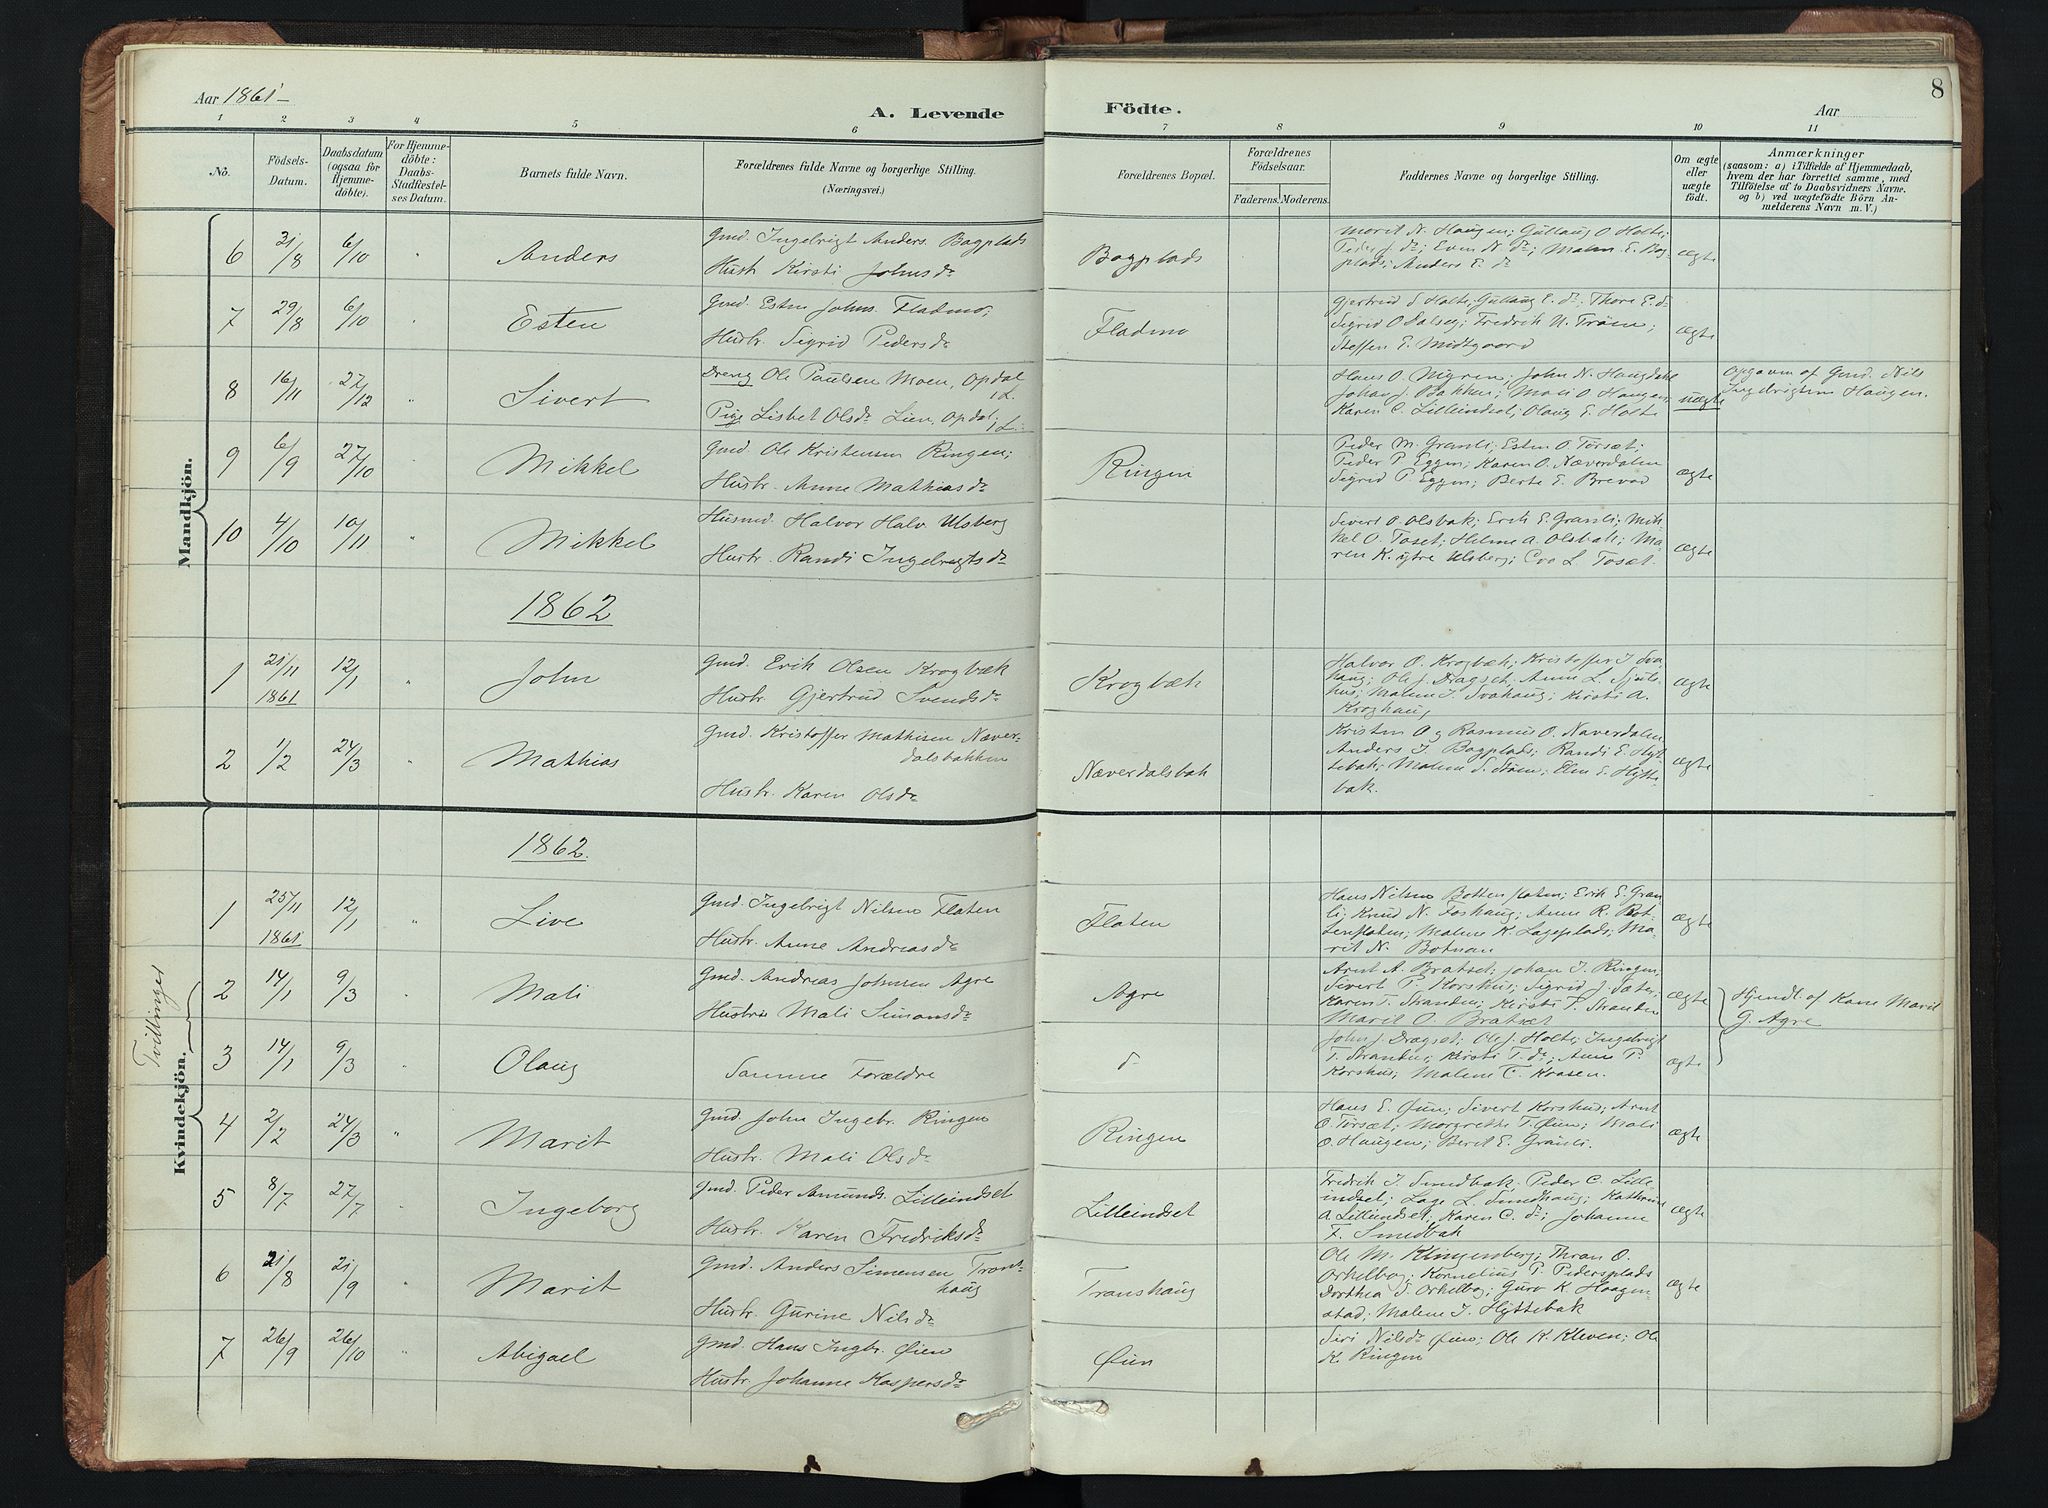 Aar 1861
A. Levende Födte.
Aar
8
1 2 3 4 5 6 7 8 9 10 11
No.
Födsels-
Datum.
Daabsdatum
(ogsaa for
Hjemme-
döbte).
For Hjemme-
döbte:
Daabs-
Stadfestel-
ses Datum.
Barnets fulde Navn.
Forældrenes fulde Navne og borgerlige Stilling.
(Næringsvei.)
Forældrenes Bopæl.
Forældrenes
Födselsaar.
Faderens. Moderens.
Faddernes Navne og borgerlige Stilling.
Om ægte
eller
uægte
födt.
Anmærkninger
(saasom: a) i Tilfælde af Hjemmedaab,
hvem der har forrettet samme, med
Tilföielse af to Daabsvidners Navne,
og b) ved uægtefödte Börn An-
melderens Navn m. V.)
Mandkjön.
6 31/8 6/10 " Anders
Gmd. Ingelrigt Anders. Bagplads
Hustr. Kirsti Johnsdr
Bagplads
Marit N. Haugen; Gullaug O Holte;
Peder J. do; Even N. do; Malen E. Bag-
plads; Anders E. do
ægte
7 29/8 6/10 " Esten
Gmd. Esten Johns. Fladmo;
Hustr. Sigrid Pedersdr
Fladmo
Gjertrud S Holte; Gullaug E. do; Thore E. do
Sigrid O Salseg; Fredrik N. Trøen;
Steffen E. Midtgaard
ægte
8 16/11 27/12 " Sivert
Dreng Ole Paulsen Moen, Opdal
Pige Lisbet Olsdr Lien, Opdal
Hans O. Nyren; John N. Haugdahl
Johan J. Bakken; Mali O Haugen;
Karen C. Lilleindset; Olaug E. Holte
uægte
Opgaven af Gmd. Nils
Ingebrigtsen Haugen.
9 6/9 27/10 Mikkel
Gmd. Ole Kristensen Ringen;
Hustr. Anne Mathiasdr
Ringen
Peder M. Granli; Esten O Torsæt;
Peder P. Eggen; Karen O. Næverdalen
Sigrid P. Eggen; Berte E. Brevad
ægte
10 4/10 10/11 " Mikkel
Husmd. Halvor Halv. Ulsberg
Hustr. Randi Ingebregtsdr
Sivert O. Olsbak; Erik E. Granli; Mik-
kel O. Toset; Helene A. Olsbak; Ma-
ren K. ytre Ulsberg; Eva L Tosæt.
ægte
1862
1 21/11 1861 12/1 " John
Gmd. Erik Olsen Krogbæk
Hustr. Gjertrud Svendsdr
Krogbæk
Halvor O. Krogbæk; Kristoffer J Sva-
haug; Ole J. Dragset; Anne L.
hus; Malene J. Svahaug; Kirsti A.
Kroghaug
ægte
2 1/2 24/3 " Mathias
Gmd. Kristoffer Mathisen Næver-
dalsbakken
Hustr. Karen Olsdr
Næverdalsbak
Kristen O og Rasmus O. Næverdalen
Anders I. Bagplads; Randi E. Hyt-
tebak; Malene S. Støen; Elen E. Hytte-
bak.
ægte
1862.
Kvindekjön.
Tvillinger
1 25/11 1861 12/1 " Live
Gmd. Ingebrigt Nilsen Flaten
Hustr. Anne Andreasdr
Flaten
Hans Nilsen Bottenflaten; Erik E. Gran-
li; Knud N. Foshaug; Anne R. Bot-
tenflaten; Malene K. Lageplads; Ma-
rit N. Botnan
ægte
2 14/1 9/3 " Mali
Gmd. Andreas Johnsen Agre
Hustru Mali Simonsdr
Agre
Arnt A. Bratset; Johan J. Ringen;
Sivert T. Korshus; Sigrid J. Sæter;
Karen T. Stranden; Kirsti P. Stranden
Marit O. Bratset
ægte
Hjemdt. af Kone Marit
G. Agre
3 14/1 9/3 " Olaug
Samme Forældre
do
John J. Dragset; Ole J. Holte; Ingebrigt
T. Stranden; Kirsti T. do; Anne P.
Korshus; Malene T. Kaasen.
ægte
4 2/2 24/3 " Marit
Gmd. John Ingebr. Ringen
Hustr. Mali Olsdr
Ringen
Hans E. Øien; Sivert Korshus; Arnt
O. Torsæt; Margrethe T. Øien; Mali
O. Haugen; Berit E. Granli.
ægte
5 8/7 27/7 " Ingeborg
Gmd. Peder Amunds. Lilleindset
Hustr. Karen Fredriksdr
Lilleindset
Fredrik J. Smedbak; Peder C. Lille-
indset; Lage L. Sundhaug; Kathrine
A. Lilleindset; Karen C. do; Johanne
F. Smedbak
ægte
6 21/8 21/9 " Marit
Gmd. Anders Simensen Trons-
haug
Hustr. Gurine Nilsdr
Tronshaug
Ole M. Klingenberg; Thron O.
Orkelbog; Kornelius P. Pedersplads
Dorthea J. Orkelbog; Guro K. Haagen-
stad; Malene J. Hyttebak
ægte
7 26/9 26/10 " Abigael
Gmd. Hans Ingbr. Øien
Hustr. Johanne Kaspersdr
Øien
Siri Nilsdr Øien; Ole K. Kleven; Ole
K. Ringen